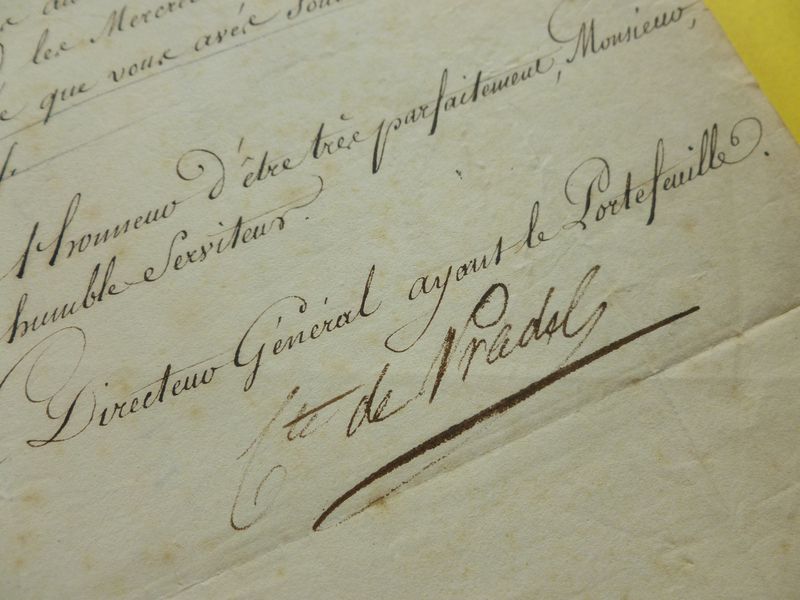 les Mercre
que vous avés sou
l'honneur d'être très parfaitement, Monsieur,
humble Serviteur.
Directeur Général ayant le Portefeuille.
Cte de Pradel